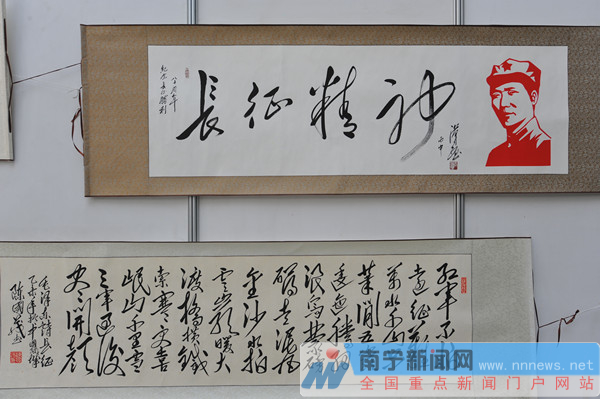 長征精神
纪念长征胜利
丙申
红军不
遠征難
萬水千山
等闲五
逶迤腾细
浪乌蒙磅
礴走泥丸
金沙水拍
云崖暖大
渡橋横鐵
索寒更喜
岷山千里雪
三军过後
尽开颜
毛泽东诗长征
南宁新闻网
www.nnnews.net
全国重点新闻门户网站